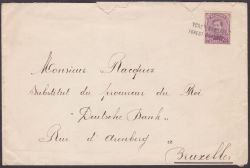 Monsieur Racquez
Substitut du procureur du Roi
"Deutsche Bank"
Rue d'arenberg
à
Bruxelles